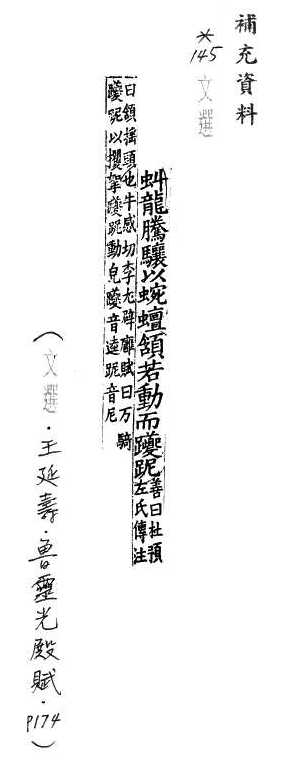 補充資料
*145 文選
虯龍騰驤以蜿蟺頷若動而躨跜善曰杜預
左氏傳注
曰頷搖頭也牛感切李尤辟廱賦曰万騎
躨跜以攫挐躨跜動皃躨音逵跜音尼
(文選·王延壽·魯靈光殿賦·P174)